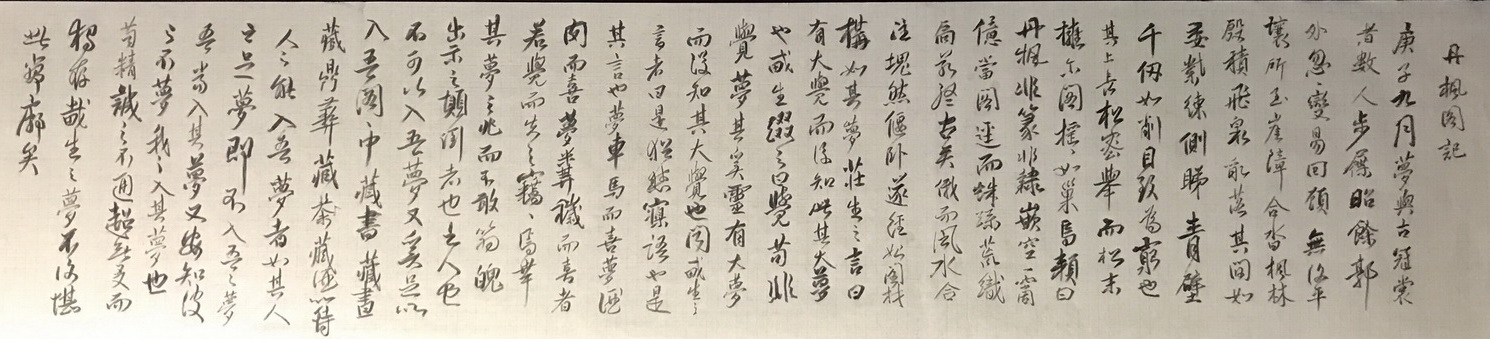 丹楓閣記
庚子九月夢與古冠裳
者數人步屧昭餘郭
外忽變易回顧無復平
壤所至崖障合沓楓林
殷積飛泉前落其間如
丹壑紫練側睇青壁
千仞如削目致為窮也
其上長松密舉而松末
擁一閣搖搖如巢焉顏曰
丹楓非篆非隸嵌空窅
億當閣逕而蛛跡荒織
扃若終古矣俄而風水合
注塊然偃卧遂經始閣材
構如其夢莊生之言曰
有大覺而後知此其大夢
也或生綴之曰覺苟非
覺夢其奚靈有大夢
而後知其大覺也閱或生之
言者曰是猶然寐語也是
其言也夢車馬而喜夢酒
肉而喜夢糞穢而喜者
若覺而失之竊竊焉舉
其夢之兆而不敢
出示之顛倒者也之人也
不可以入吾夢又奚足以
入吾閣中藏書藏畫
藏鼎彝藏茶藏酒以待
人之能入吾夢者如其人
之足夢即不入吾之夢
吾當入其夢又安知彼
之不夢我之入其夢也
苟精誠之不通起無夋而
獨存哉生之夢不復堪
此寥廓矣